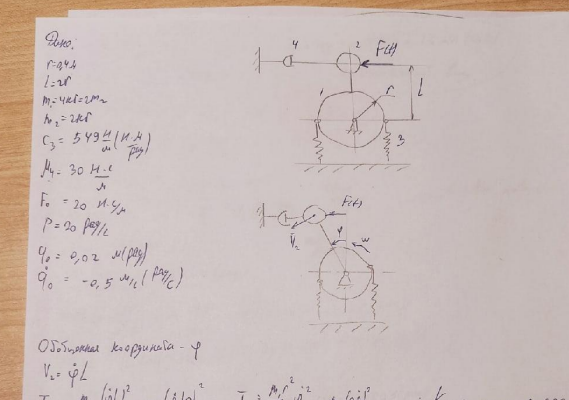 Дано:
r=0,4м
L=2r
m₁=4кг=2m₂
m₂=2кг
C₃ = 549 Н/м (Н·м/рад)
μ₄ = 30 Н·с/м
F₀ = 20
P=20 рад/с
q₀ = 0,02 м(рад)
q̇₀ = -0,5 м/с (рад/с)
4 2 F(t)
1 r L
3
F(t)
V₂ φ ω
Обобщенная координата - φ
V₂ = φ̇L